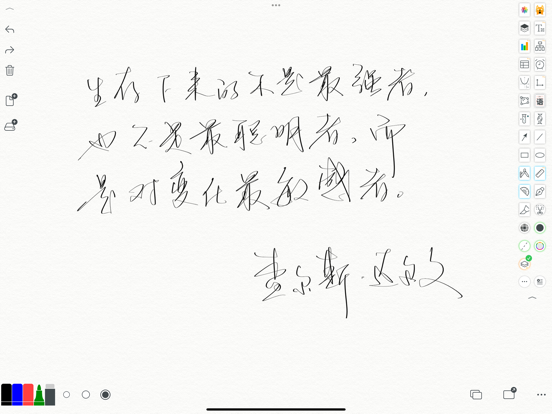 生存下来的不是最强者，
也不是最聪明者，而
是对变化最敏感者。
查尔斯·达尔文